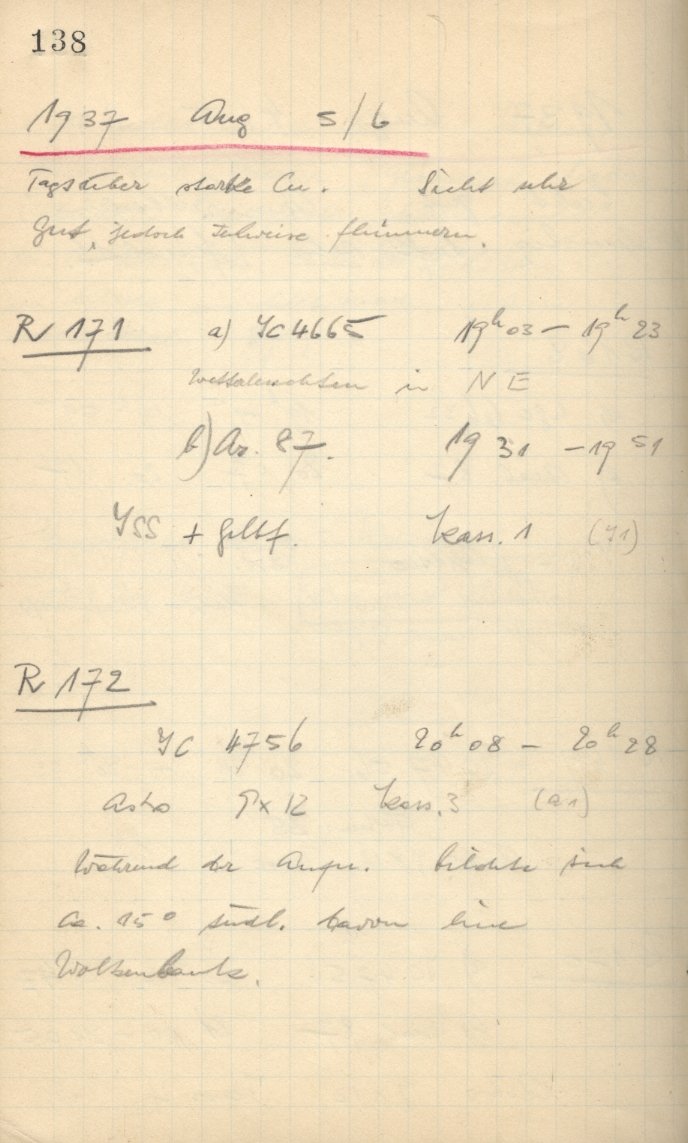 138
1937 Aug 5/6
Tagsüber starke Cu. Sicht sehr
gut, jedoch teilweise flimmern.
R 171 a) IC 4665 19h 03 – 19h 23
Wetterleuchten in NE
b) 87. 19 31 – 19 51
ISS + Gelbf. Kass. 1 (I1)
R 172
IC 4756 20h 08 – 20h 28
Astro 9x12 Kass. 3 (a1)
Während der Aufn. bildete sich
ca. 15° südl. davon eine
Wolkenbank.